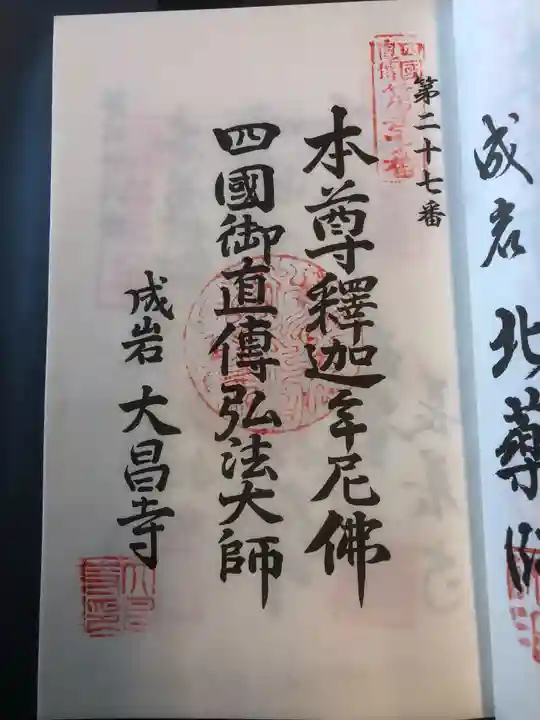 成岩 北尊
第二十七番
四國
直傳
本尊釋迦牟尼佛
四國御直傳弘法大師
成岩 大昌寺